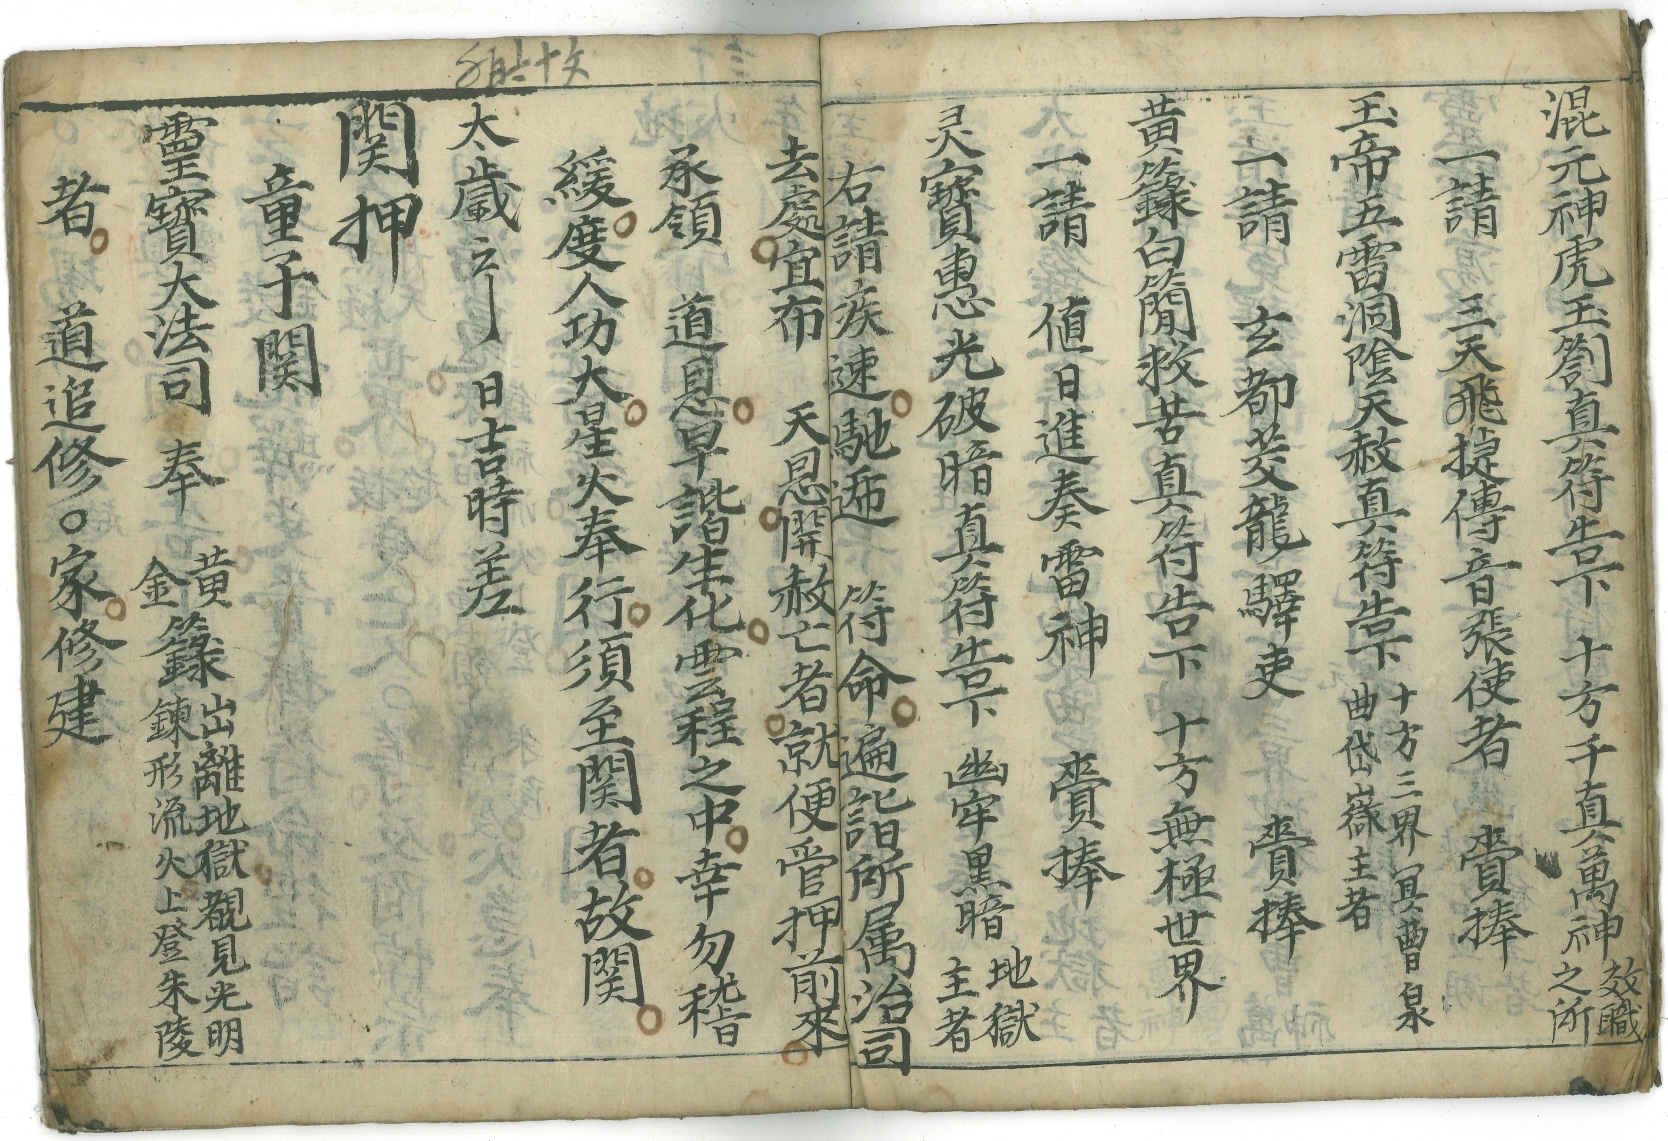 混元神虎玉劄真符告下 十方千真萬神效職之所
一請 三天飛捷傳音張使者 賫捧
玉帝五雷洞陰天赦真符告下 十方三界冥曹泉曲岱嶽主者
一請 玄都茭龍驛吏 賫捧
黃籙白簡救苦真符告下 十方無極世界
一請 值日進奏雷神 賫捧
灵寶惠光破暗真符告下 幽牢黑暗地獄主者
右請疾速馳遞 符命遍詣所属治司
去處宜布 天恩開赦亡者就便管押前來
承領 道恩早諧生化雲程之中幸勿稽
緩度人功大星火奉行須至関者故関
太歲 日吉時差
関押
童子関
靈寶大法司 奉 黃籙出離地獄覩見光明
金籙鍊形流火上登朱陵
者 道追修○家修建